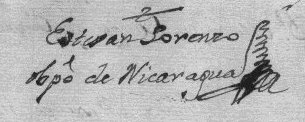 Estevan Lorenzo
obpo de Nicaragua